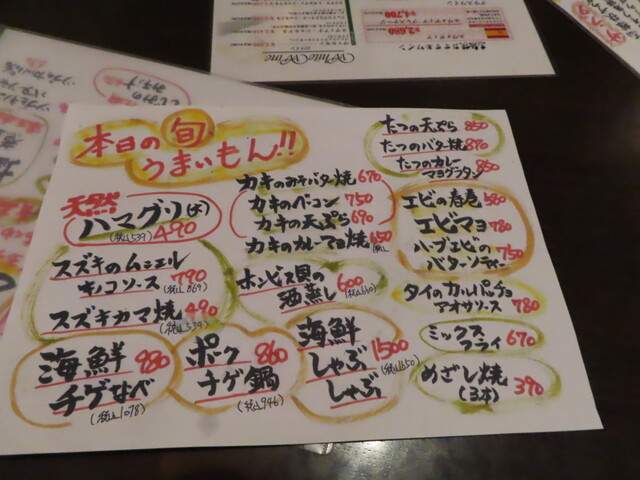 本日の旬
うまいもん!!
天然
ハマグリ(大)
(税込539) 490
スズキのムニエル
キノコソース 790
(税込869)
スズキカマ焼 490
(税込539)
海鮮 980
チゲなべ
(税込1078)
カキのみそバター焼 670
カキのベーコン 750
カキの天ぷら 690
カキのカレーマヨ焼 650
ホンビス貝の 600
酒蒸し (税込660)
ポーク 860
チゲ鍋
(税込946)
海鮮
しゃぶ 1500
しゃぶ (税込1650)
たつの天ぷら 850
たつのバター焼 870
たつのカレー
マヨグラタン 850
エビの春巻 580
エビマヨ 780
ハーブエビの
バターソティー 750
タイのカルパッチョ
アオサソース 780
ミックス
フライ 670
めざし焼
(3本) 390
White Wine
¥2,600
¥4,700